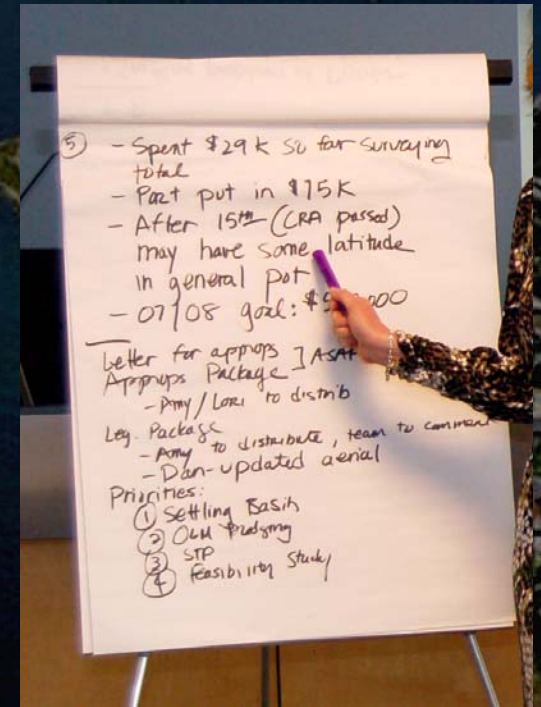 ⑤ - Spent $29K so far surveying
total
- Port put in $175K
- After 15th (CRA passed)
may have some latitude
in general pot
- 07/08 goal: $ 000
Letter for approps ] ASAP
Approps Package
- Amy/Lori to distrib
Leg. Package
- Amy to distribute, team to comment
- Dan-updated aerial
Priorities:
① Settling Basin
② O&M Dredging
③ STP
④ Feasibility Study